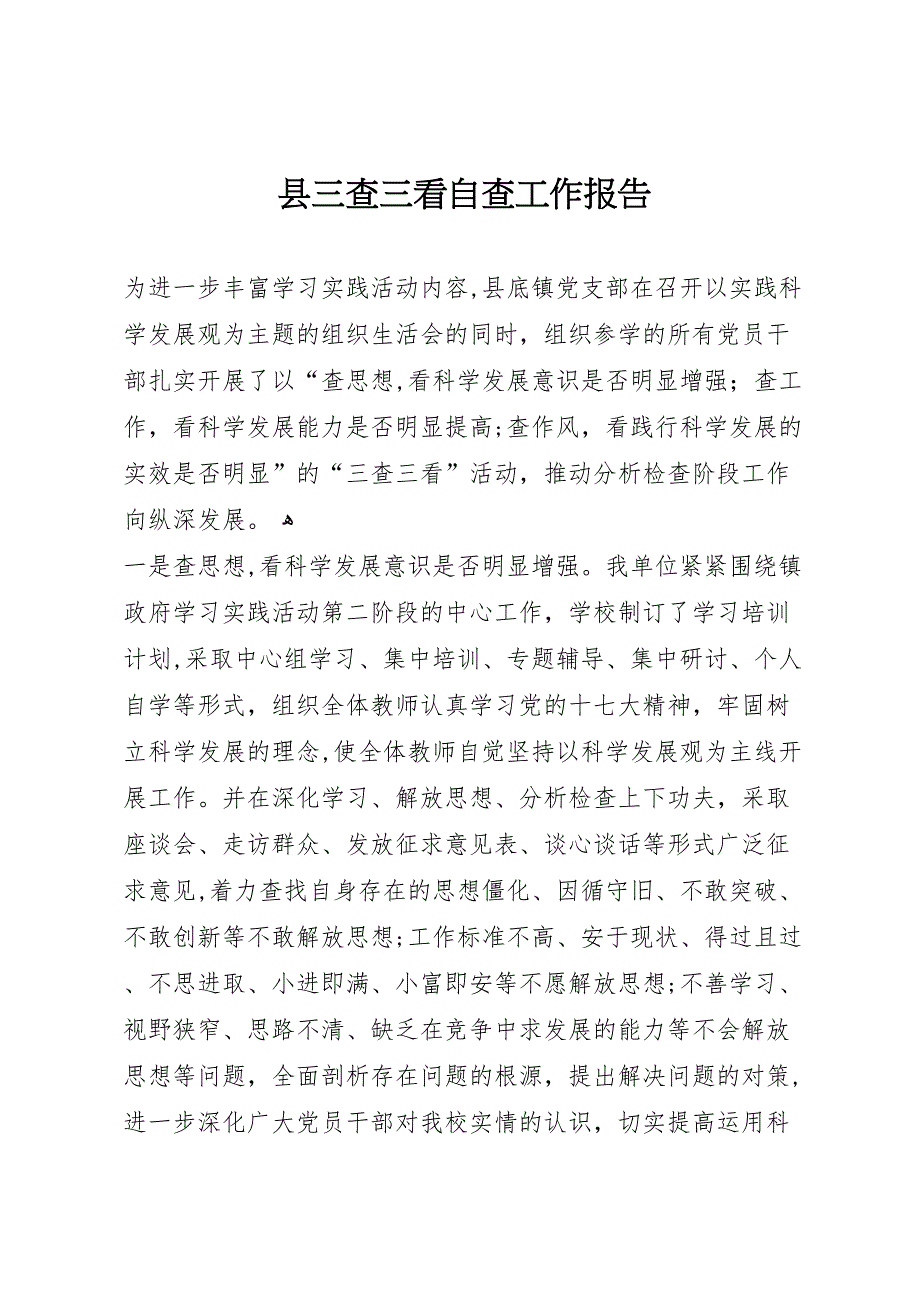 县三查三看自查工作报告
为进一步丰富学习实践活动内容,县底镇党支部在召开以实践科
学发展观为主题的组织生活会的同时，组织参学的所有党员干
部扎实开展了以“查思想,看科学发展意识是否明显增强；查工
作，看科学发展能力是否明显提高;查作风，看践行科学发展的
实效是否明显”的“三查三看”活动，推动分析检查阶段工作
向纵深发展。 ﻫ
一是查思想,看科学发展意识是否明显增强。我单位紧紧围绕镇
政府学习实践活动第二阶段的中心工作，学校制订了学习培训
计划,采取中心组学习、集中培训、专题辅导、集中研讨、个人
自学等形式，组织全体教师认真学习党的十七大精神，牢固树
立科学发展的理念,使全体教师自觉坚持以科学发展观为主线开
展工作。并在深化学习、解放思想、分析检查上下功夫，采取
座谈会、走访群众、发放征求意见表、谈心谈话等形式广泛征
求意见,着力查找自身存在的思想僵化、因循守旧、不敢突破、
不敢创新等不敢解放思想;工作标准不高、安于现状、得过且过
、不思进取、小进即满、小富即安等不愿解放思想;不善学习、
视野狭窄、思路不清、缺乏在竞争中求发展的能力等不会解放
思想等问题，全面剖析存在问题的根源，提出解决问题的对策,
进一步深化广大党员干部对我校实情的认识，切实提高运用科